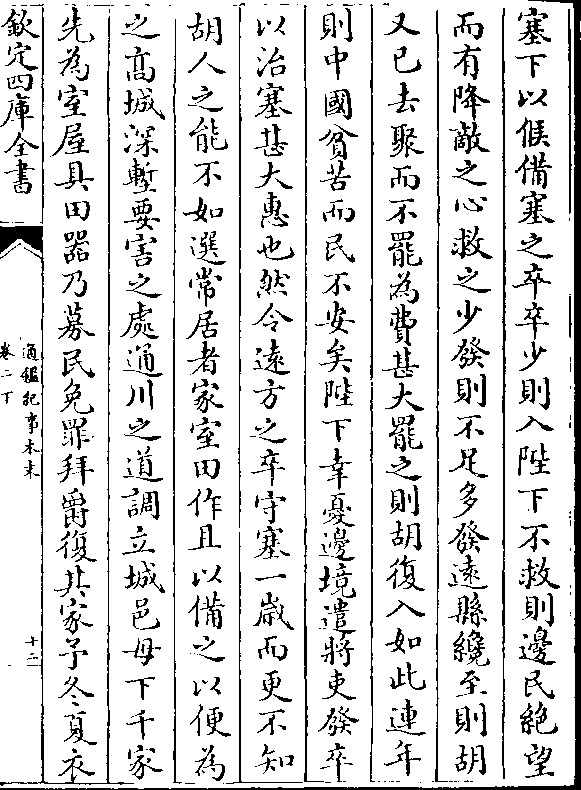 塞下以候備塞之卒卒少則入陛下不救則邊民絶望
而有降敵之心救之少發則不足多發遠縣纔至則胡
又已去聚而不罷為費甚大罷之則胡復入如此連年
則中國貧苦而民不安矣陛下幸憂邊境遣將吏發卒
以治塞甚大惠也然令遠方之卒守塞一歳而更不知
胡人之能不如選常居者家室田作且以備之以便為
之髙城深塹要害之處通川之道調立城邑毋下千家
先為室屋具田器乃募民免罪拜爵復其家予冬夏衣
欽定四庫全書
通鑑紀事本末
卷二下
十二